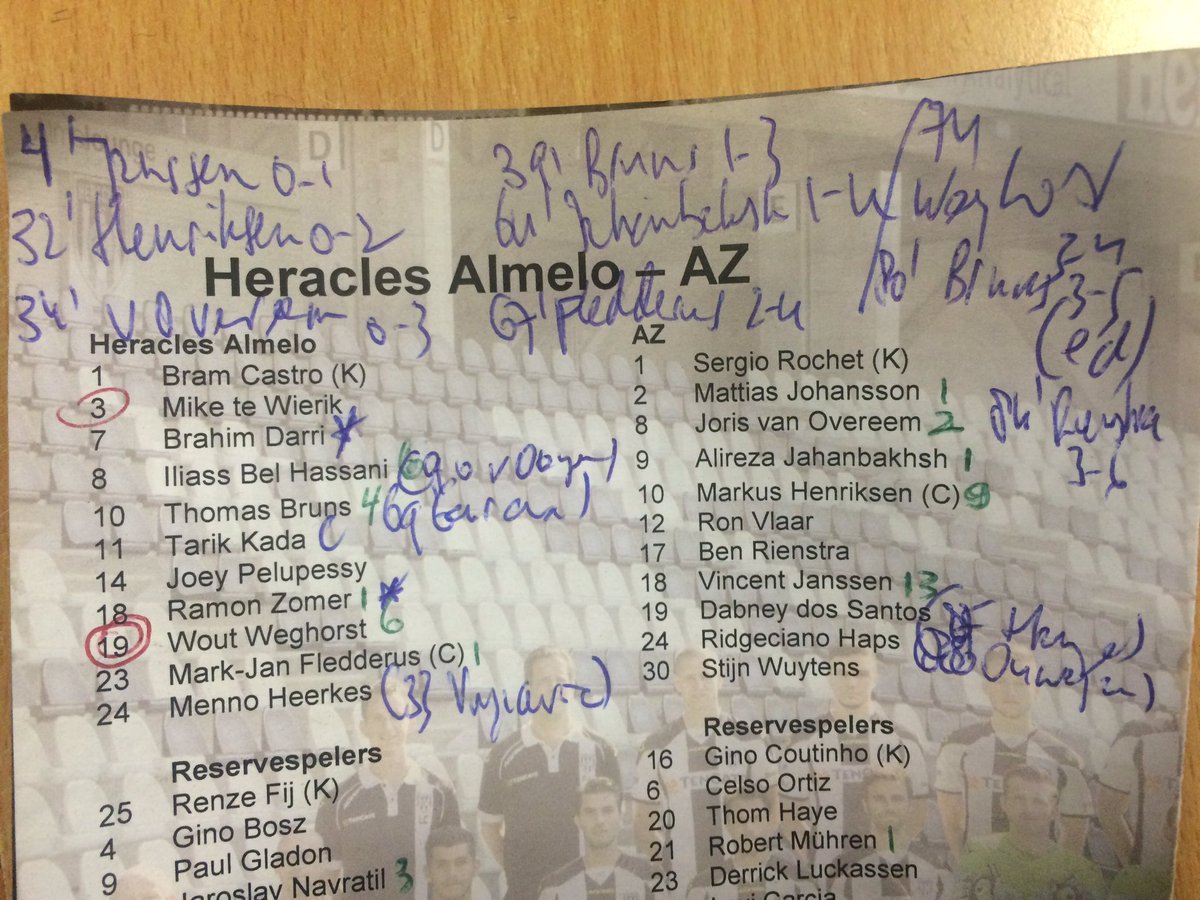 4' Janssen 0-1
32' Henriksen 0-2
34' v Overeem 0-3
39' Bruns 1-3
61' 1-4
67' Fledderus 2-4
74
Weghorst
80' Bruns
3-5
3-6
Heracles Almelo – AZ
Heracles Almelo
1 Bram Castro (K)
3 Mike te Wierik
7 Brahim Darri *
8 Iliass Bel Hassani
10 Thomas Bruns 4
11 Tarik Kada
14 Joey Pelupessy
18 Ramon Zomer 1 *
19 Wout Weghorst 6
23 Mark-Jan Fledderus (C) 1
24 Menno Heerkes
Reservespelers
25 Renze Fij (K)
4 Gino Bosz
9 Paul Gladon
Jaroslav Navratil 3
AZ
1 Sergio Rochet (K)
2 Mattias Johansson 1
8 Joris van Overeem 2
9 Alireza Jahanbakhsh 1
10 Markus Henriksen (C) 9
12 Ron Vlaar
17 Ben Rienstra
18 Vincent Janssen 13
19 Dabney dos Santos
24 Ridgeciano Haps
30 Stijn Wuytens
Reservespelers
16 Gino Coutinho (K)
6 Celso Ortiz
20 Thom Haye
21 Robert Mühren 1
23 Derrick Luckassen